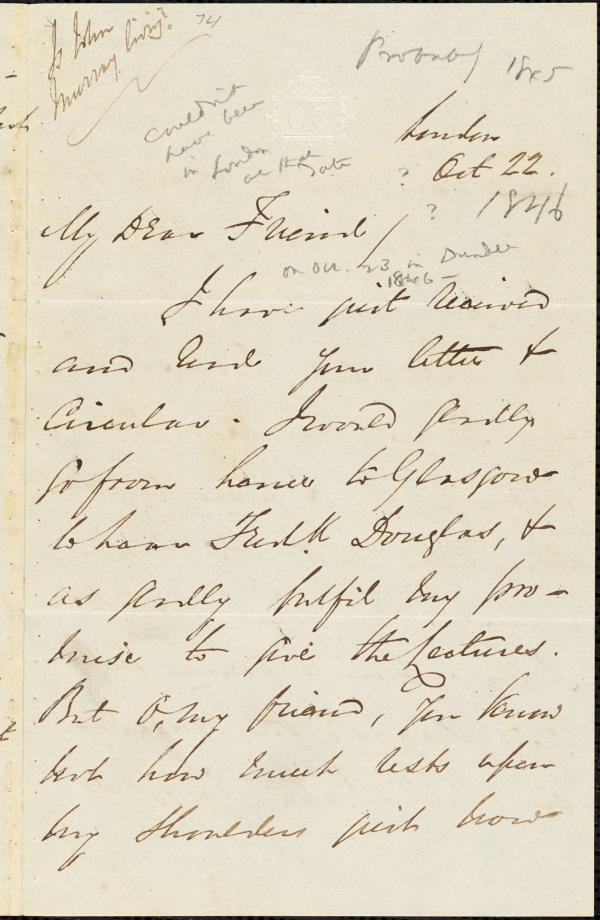 Is John
Murray living?
74
Probably 1845
couldn't
have been
in London
at that
date
London
? Oct 22.
? 1846
My Dear Friend
on Oct. 23 in Dundee
1846 —
I have just received
and read your letter &
Circular. I would gladly
go from hence to Glasgow
to hear Fredk. Douglas, &
as gladly fulfil my pro-
mise to give the Lectures.
But O, my friend, you know
not how much rests upon
my shoulders just now